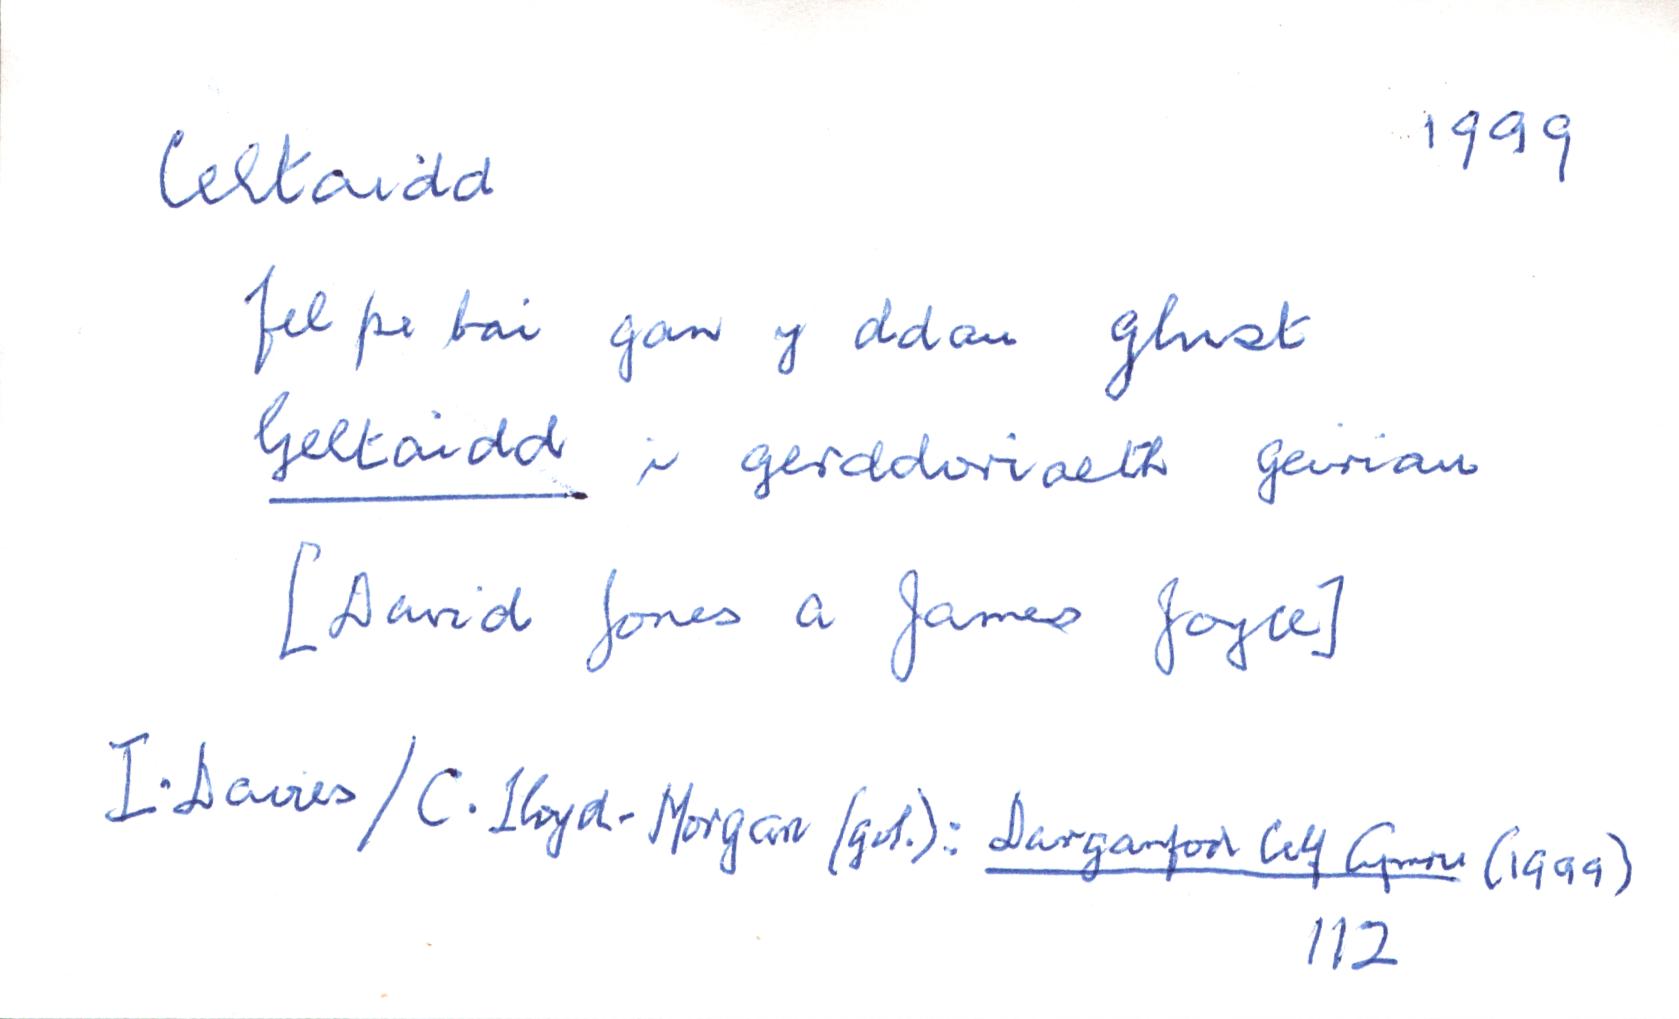 Celtaidd 1999
fel pe bai gan y ddau glust
Geltaidd i gerddoriaeth geiriau
[David Jones a James Joyce]
I. Davies / C. Lloyd-Morgan (gol.): Darganfod Celf Cymru (1999)
112